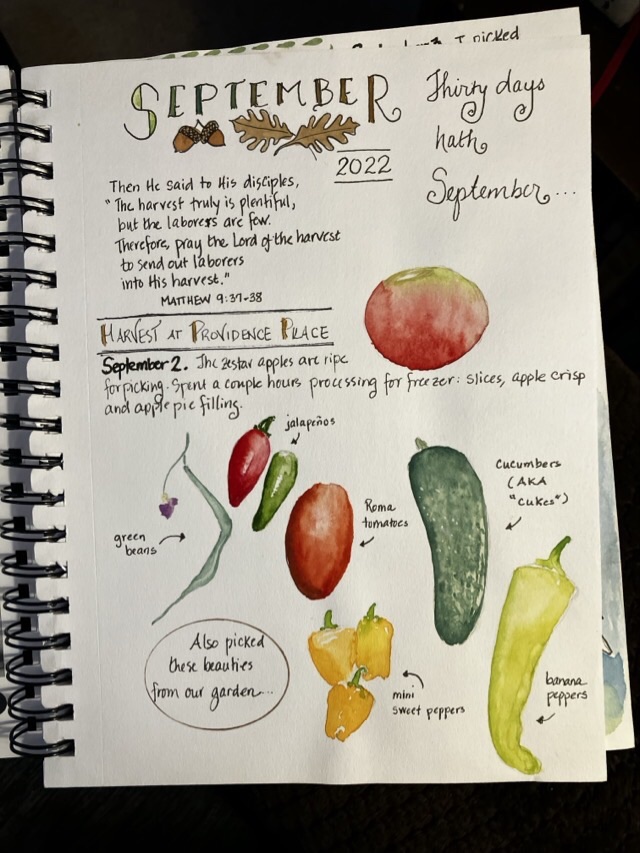 I picked
SEPTEMBER
2022
Thirty days
hath
September...
Then He said to His disciples,
"The harvest truly is plentiful,
but the laborers are few.
Therefore, pray the Lord of the harvest
to send out laborers
into His harvest."
MATTHEW 9:37-38
HARVEST AT PROVIDENCE PLACE
September 2. The zestar apples are ripe
for picking. Spent a couple hours processing for freezer: slices, apple crisp
and apple pie filling.
jalapeños
green
beans
Roma
tomatoes
Cucumbers
(AKA
"cukes")
Also picked
these beauties
from our garden...
mini
sweet peppers
banana
peppers